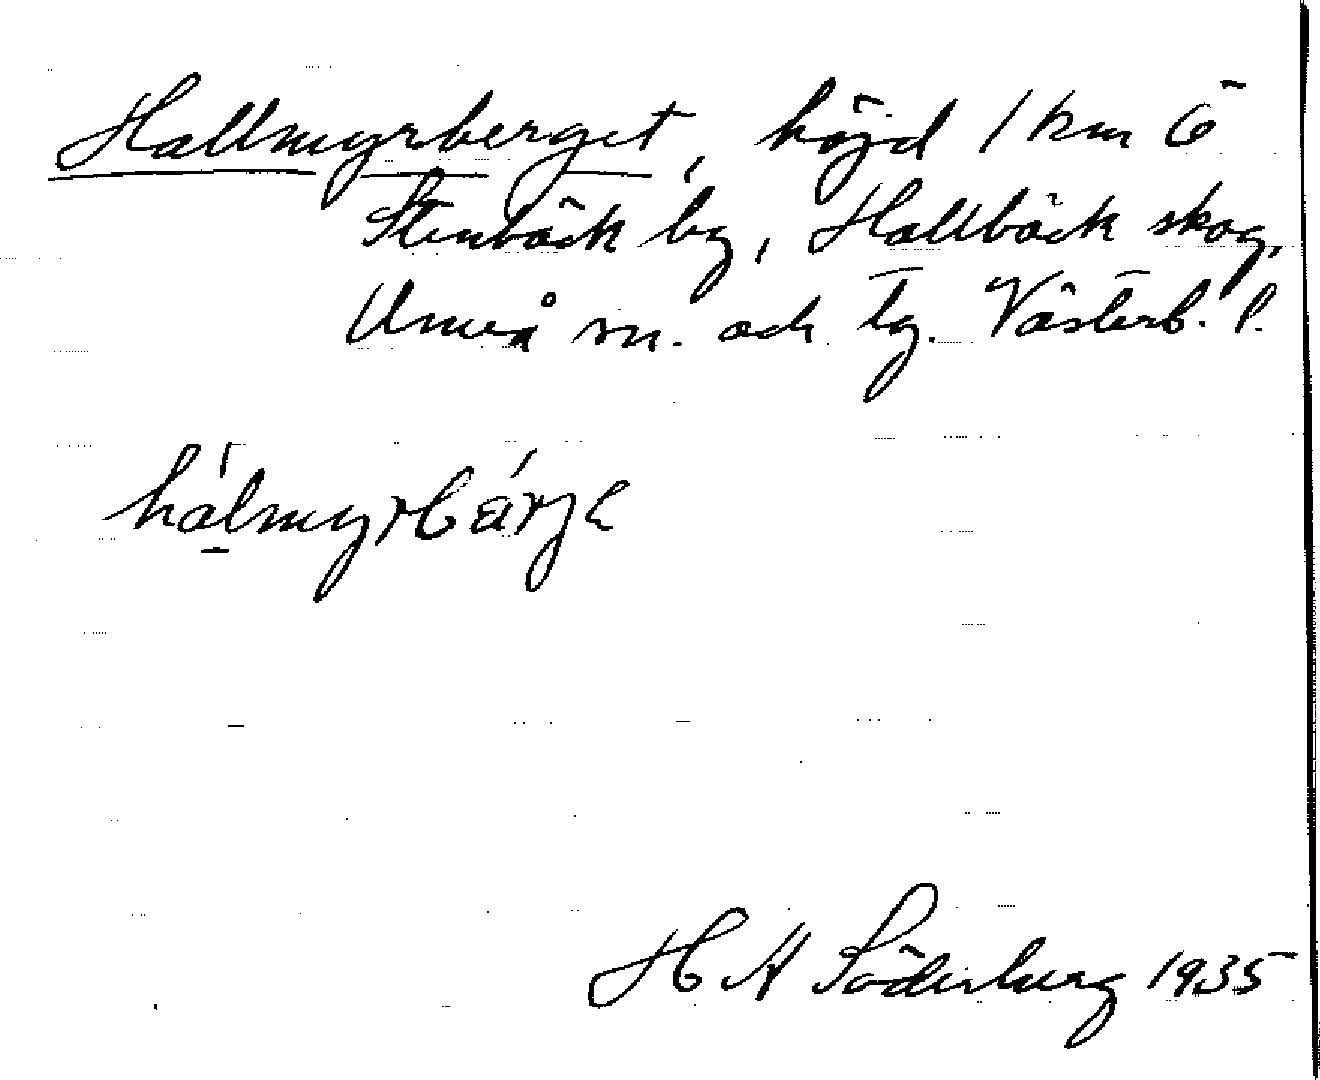 Hallmyrberget, höjd 1 km Ö
Stenbäck by, Hallbäck skog,
Umeå sn. och tg. Västerb. l.
hálmyrbárje
H A Söderberg 1935